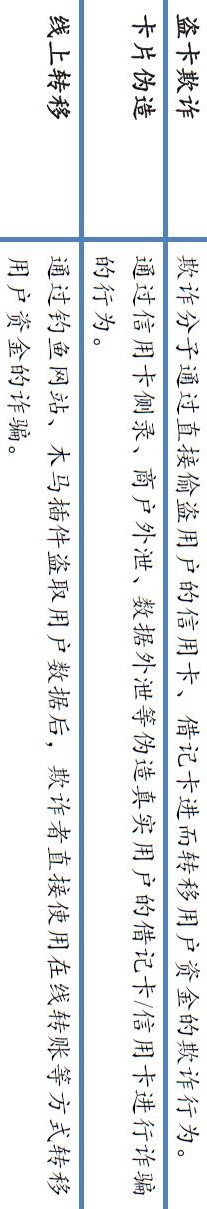 盗卡欺诈
欺诈分子通过直接偷盗用户的信用卡、借记卡进而转移用户资金的欺诈行为。
卡片伪造
通过信用卡侧录、商户外泄、数据外泄等伪造真实用户的借记卡/信用卡进行诈骗
的行为。
线上转移
通过钓鱼网站、木马插件盗取用户数据后，欺诈者直接使用在线转账等方式转移
用户资金的诈骗。